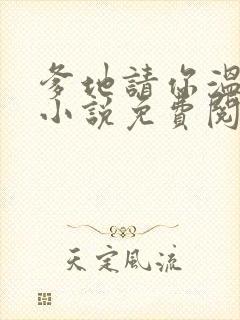 爹地請你溫
小說免費閱
天定風流